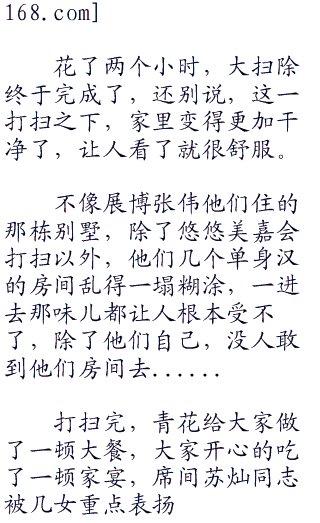 168.com]
花了两个小时，大扫除
终于完成了，还别说，这一
打扫之下，家里变得更加干
净了，让人看了就很舒服。
不像展博张伟他们住的
那栋别墅，除了悠悠美嘉会
打扫以外，他们几个单身汉
的房间乱得一塌糊涂，一进
去那味儿都让人根本受不
了，除了他们自己，没人敢
到他们房间去......
打扫完，青花给大家做
了一顿大餐，大家开心的吃
了一顿家宴，席间苏灿同志
被几女重点表扬